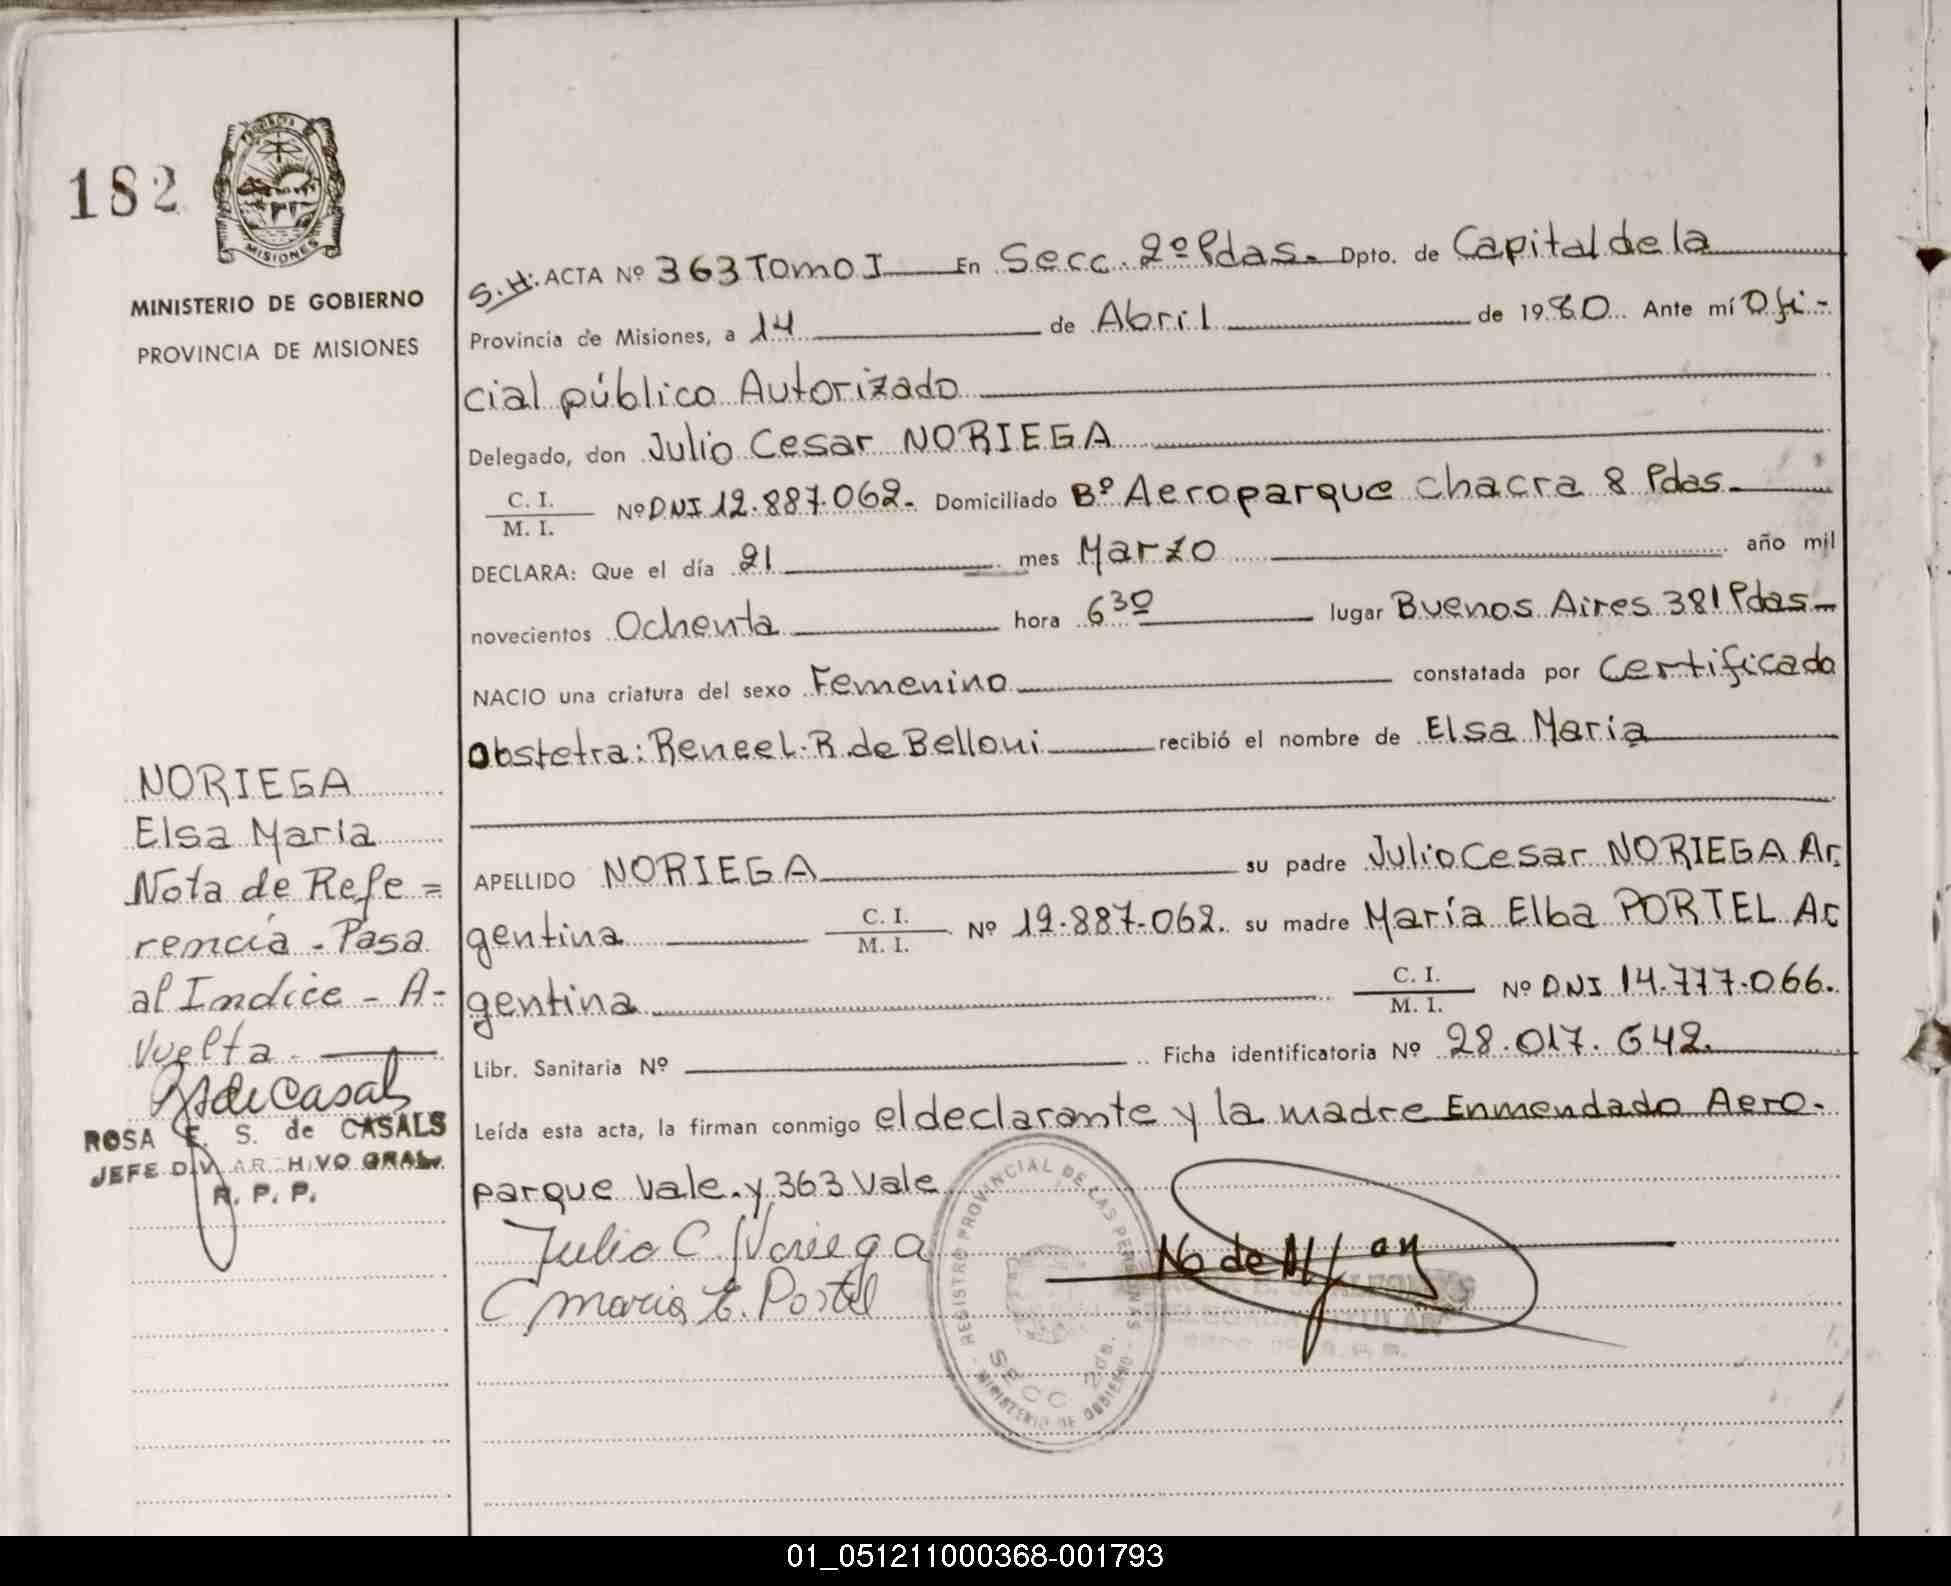 182
PROVINCIA
MISIONES
MINISTERIO DE GOBIERNO
PROVINCIA DE MISIONES
S.H: ACTA Nº 363 Tomo I En Secc. 2º Pdas. Dpto. de Capital de la
Provincia de Misiones, a 14 de Abril de 1980 Ante mí Ofi-
cial público Autorizado
Delegado, don Julio Cesar NORIEGA
C. I.
M. I.
Nº DNI 12.887.062. Domiciliado Bº Aeroparque chacra 8 Pdas.
DECLARA: Que el día 21 mes Marzo año mil
novecientos Ochenta hora 6 30 lugar Buenos Aires 381 Pdas
NACIO una criatura del sexo Femenino constatada por Certificado
Obstetra: Reneel. R. de Belloni recibió el nombre de Elsa María
APELLIDO NORIEGA su padre Julio Cesar NORIEGA Ar
gentina C. I. M. I. Nº 12.887.062. su madre María Elba PORTEL Ar
gentina C. I. M. I. Nº DNI 14.777.066.
Libr. Sanitaria Nº Ficha identificatoria Nº 28.017.642.
Leída esta acta, la firman conmigo el declarante y la madre Enmendado Aero-
parque Vale. y 363 Vale
Julio C Noriega
Maria E. Portel
REGISTRO PROVINCIAL DE LAS PERSONAS
SECC 2da.
MINISTERIO DE GOBIERNO
NORIEGA
Elsa María
Nota de Refe=
rencia - Pasa
al Indice - A-
Vuelta.
ROSA E. S. de CASALS
JEFE DIV. ARCHIVO GRAL.
R. P. P.
01_051211000368-001793